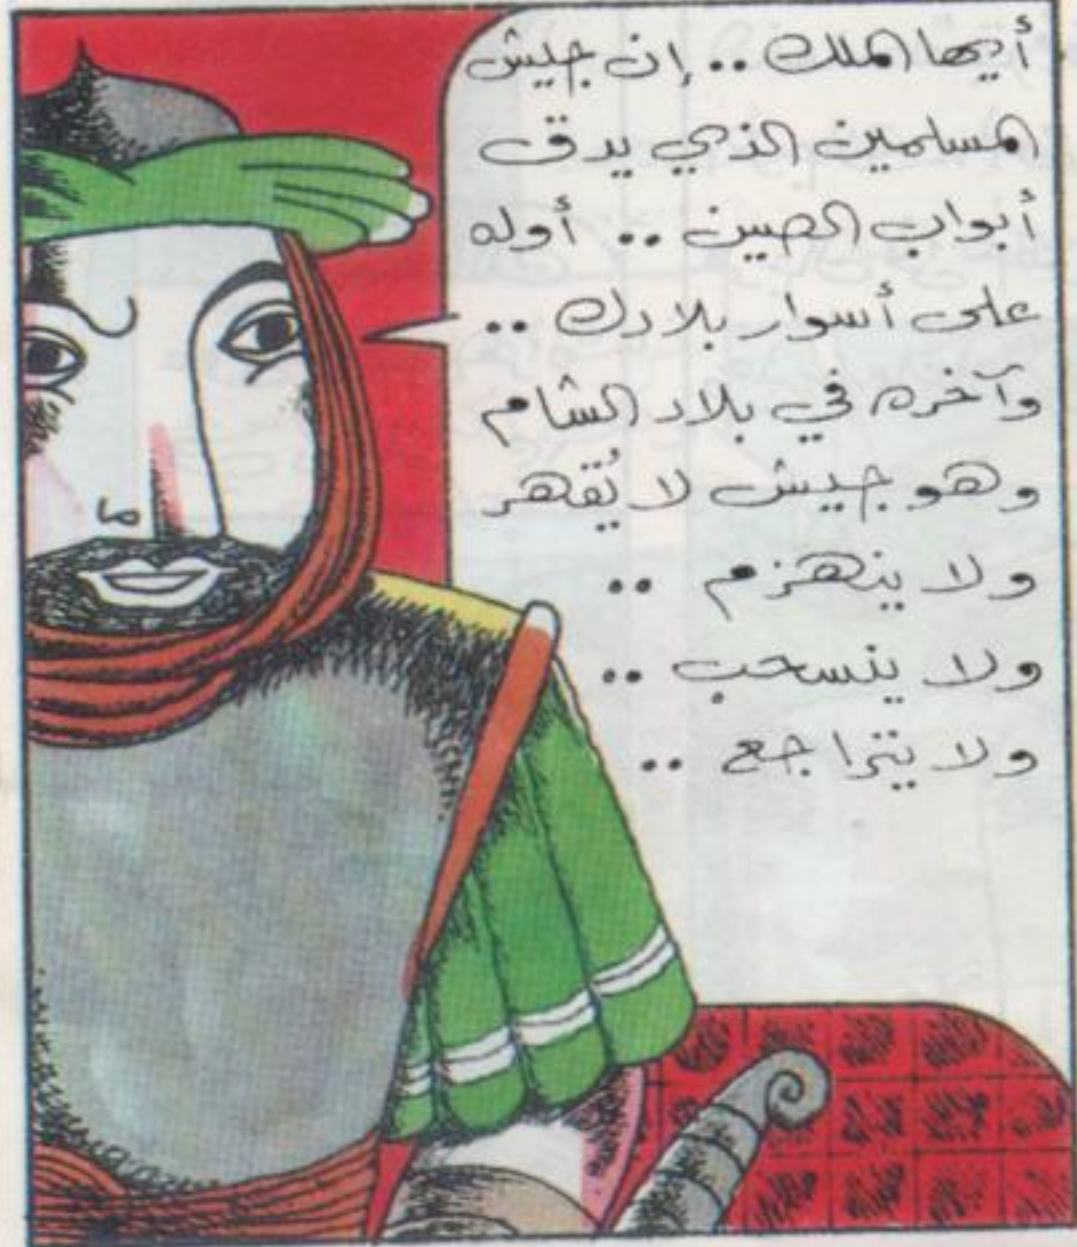 أيها الملك .. إن جيش
المسلمين الذي يدق
أبواب الصين .. أوله
على أسوار بلادك ..
وآخره في بلاد الشام
وهو جيش لا يُقهر
ولا ينهزم ..
ولا ينسحب ..
ولا يتراجع ..